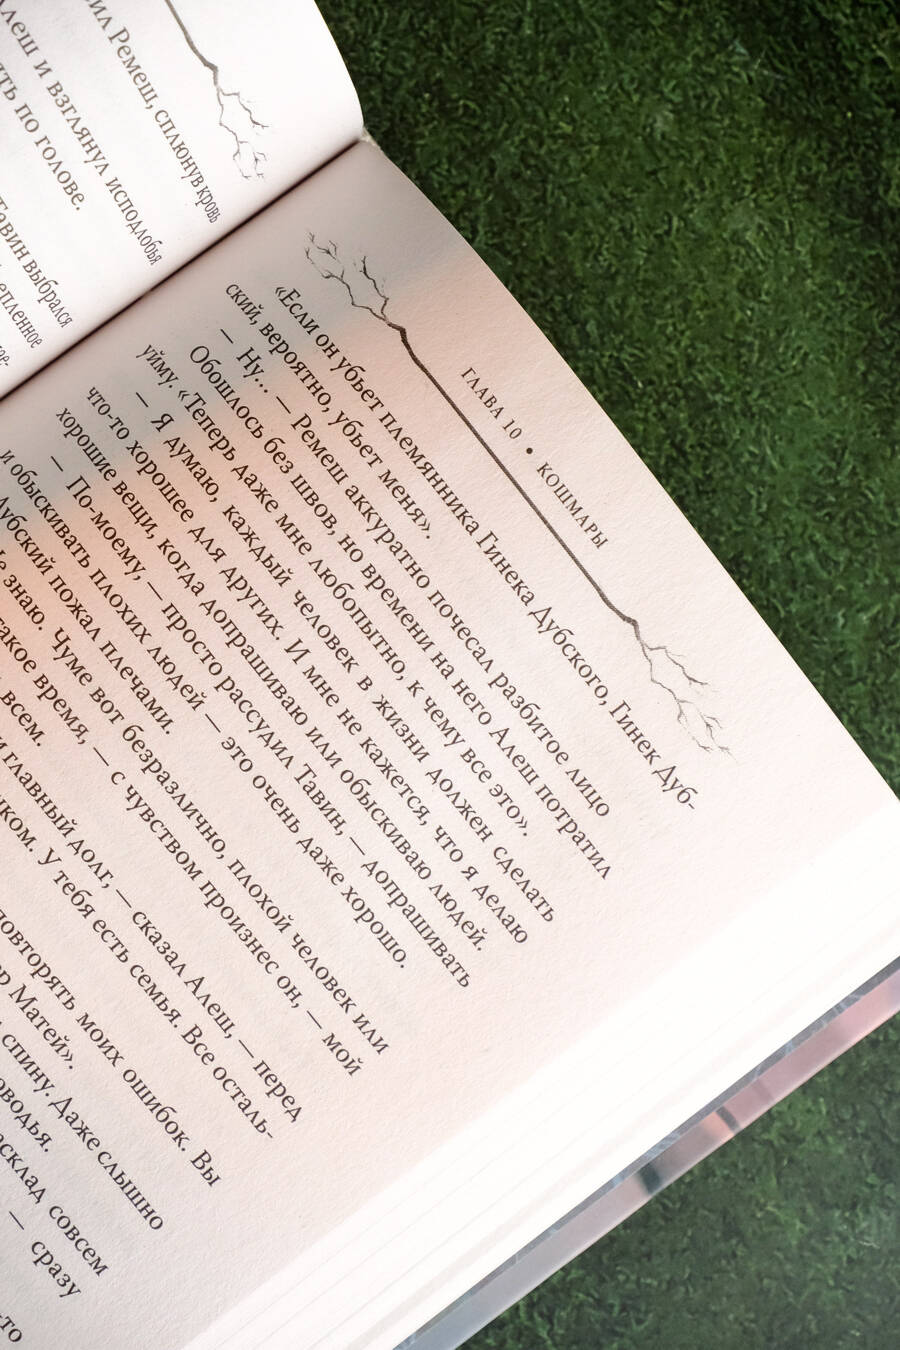 сил Ремеш, сплюнув кровь
Алеш и взглянул исподлобья
по голове.
Тавин выбрался
ГЛАВА 10 • КОШМАРЫ
«Если он убьет племянника Гинека Дубского, Гинек Дуб-
ский, вероятно, убьет меня».
— Ну... — Ремеш аккуратно почесал разбитое лицо
Обошлось без швов, но времени на него Алеш потратил
уйму. «Теперь даже мне любопытно, к чему все это».
— Я думаю, каждый человек в жизни должен сделать
что-то хорошее для других. И мне не кажется, что я делаю
хорошие вещи, когда допрашиваю или обыскиваю людей.
— По-моему, — просто рассудил Тавин, — допрашивать
и обыскивать плохих людей — это очень даже хорошо.
Дубский пожал плечами.
Не знаю. Чуме вот безразлично, плохой человек или
такое время, — с чувством произнес он, — мой
всем.
главный долг, — сказал Алеш, — перед
У тебя есть семья. Все осталь-
повторять моих ошибок. Вы
Матей».
спину. Даже слышно
совсем
— сразу